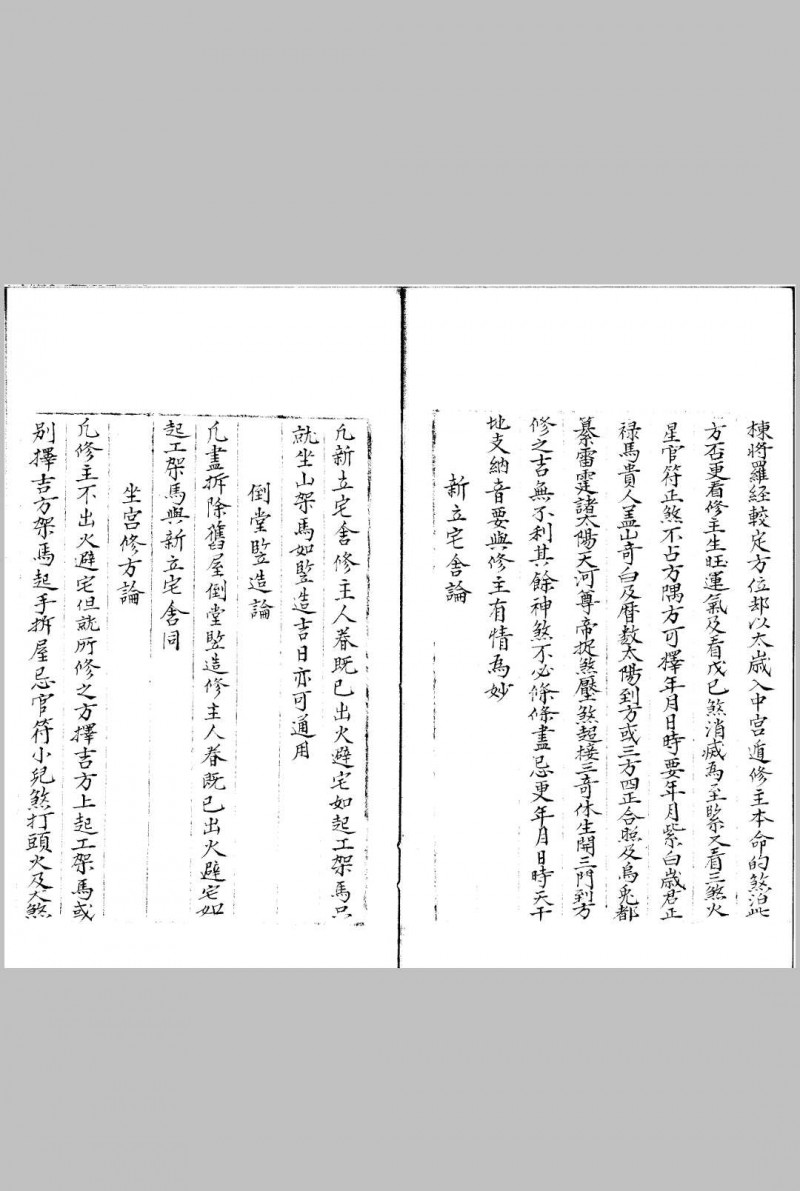 棟將羅經較定方位却以太歲入中宮遁修主本命的煞泊此
方否更看修主生旺運氣及看戊已煞消滅為至緊又看三煞火
星官符正煞不占方隅方可擇年月日時要年月紫白歲君正
禄馬貴人盖山竒白及曆数太陽到方或三方四正合照及烏兎都
纂雷霆諸太陽天河尊帝捉煞壓煞超接三竒休生開三門到方
修之吉無不利其餘神煞不必條條盡忌更年月日時天干
地支納音要與修主有情為妙
新立宅舍論
凡新立宅舍修主人眷既已出火避宅如起工架馬只
就坐山架馬如竪造吉日亦可通用
倒堂竪造論
凡盡拆除舊屋倒堂竪造修主人眷既已出火避宅如
起工架馬與新立宅舍同
坐宮修方論
凡修主不出火避宅但就所修之方擇吉方上起工架馬或
別擇吉方架馬起手拆屋忌官符小兒煞打頭火及大煞